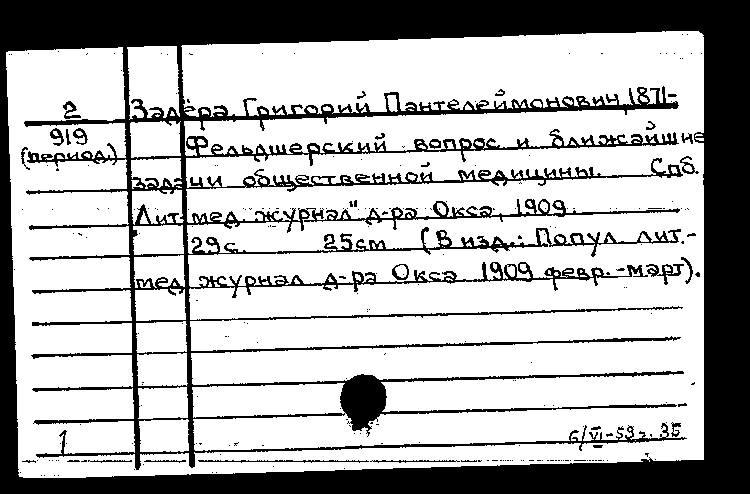 2 Задёра, Григорий Пантелеймонович, 1871-
919
(период.) Фельдшерский вопрос и ближайшие
задачи общественной медицины. Спб.
Лит-мед. журнал" д-ра Окса, 1909.
29с. 25см (В изд.: Попул. лит.-
мед. журнал д-ра Окса 1909 февр.-март).
1
6/VI-53г. 35